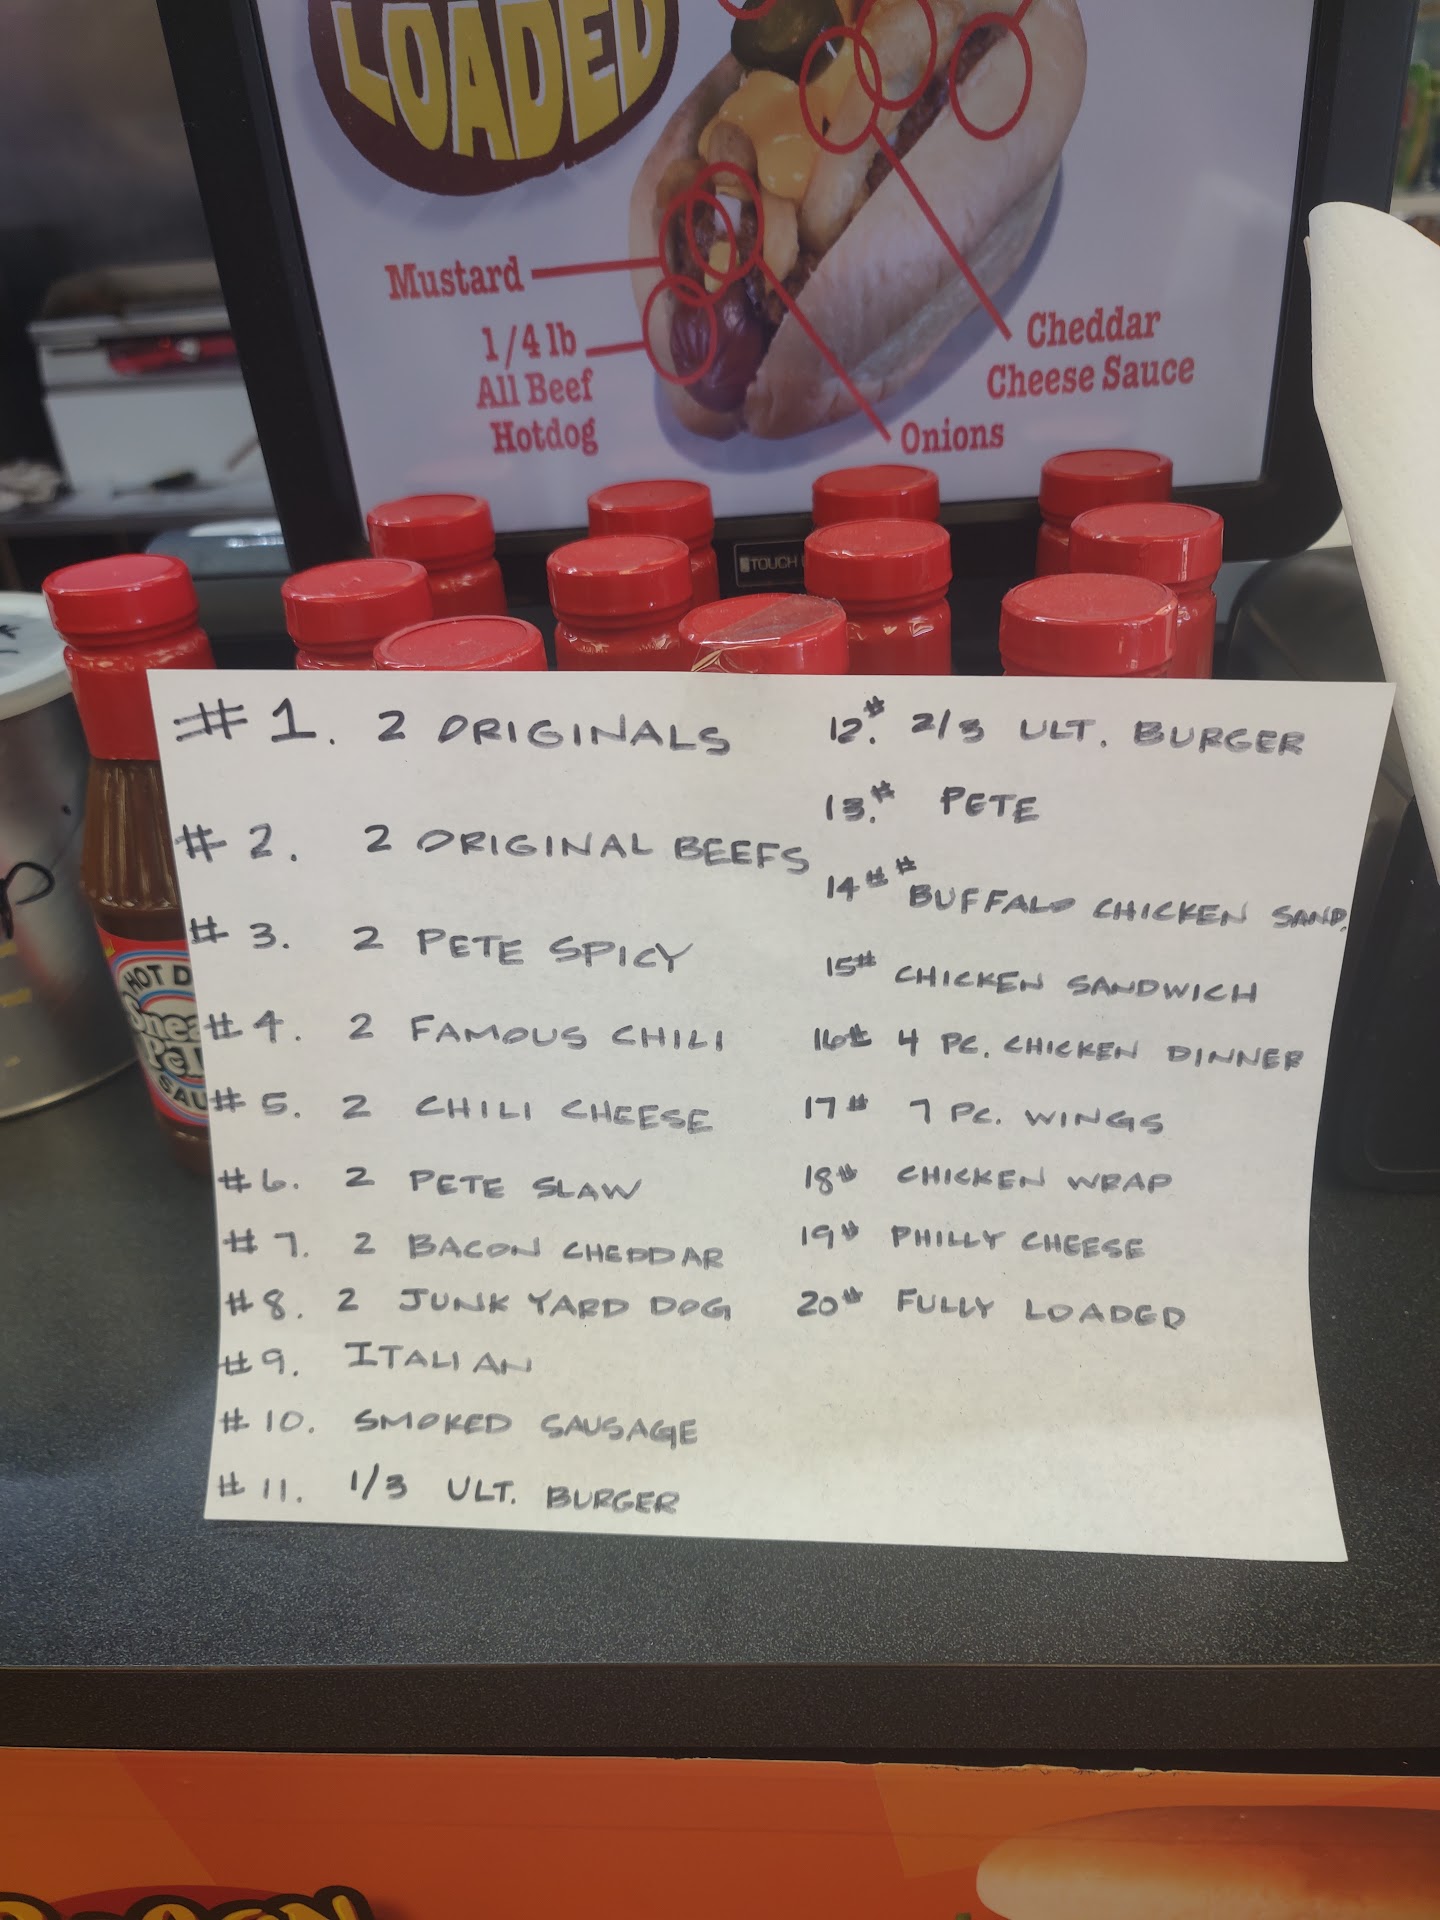 LOADED
Mustard
1/4 lb
All Beef
Hotdog
Cheddar
Cheese Sauce
Onions
TOUCH
HOT D
SAU
#1. 2 ORIGINALS
#2. 2 ORIGINAL BEEFS
#3. 2 PETE SPICY
#4. 2 FAMOUS CHILI
#5. 2 CHILI CHEESE
#6. 2 PETE SLAW
#7. 2 BACON CHEDDAR
#8. 2 JUNK YARD DOG
#9. ITALIAN
#10. SMOKED SAUSAGE
#11. 1/3 ULT. BURGER
12.# 2/3 ULT. BURGER
13.# PETE
14## BUFFALO CHICKEN SAND.
15# CHICKEN SANDWICH
16# 4 PC. CHICKEN DINNER
17# 7 PC. WINGS
18# CHICKEN WRAP
19# PHILLY CHEESE
20# FULLY LOADED